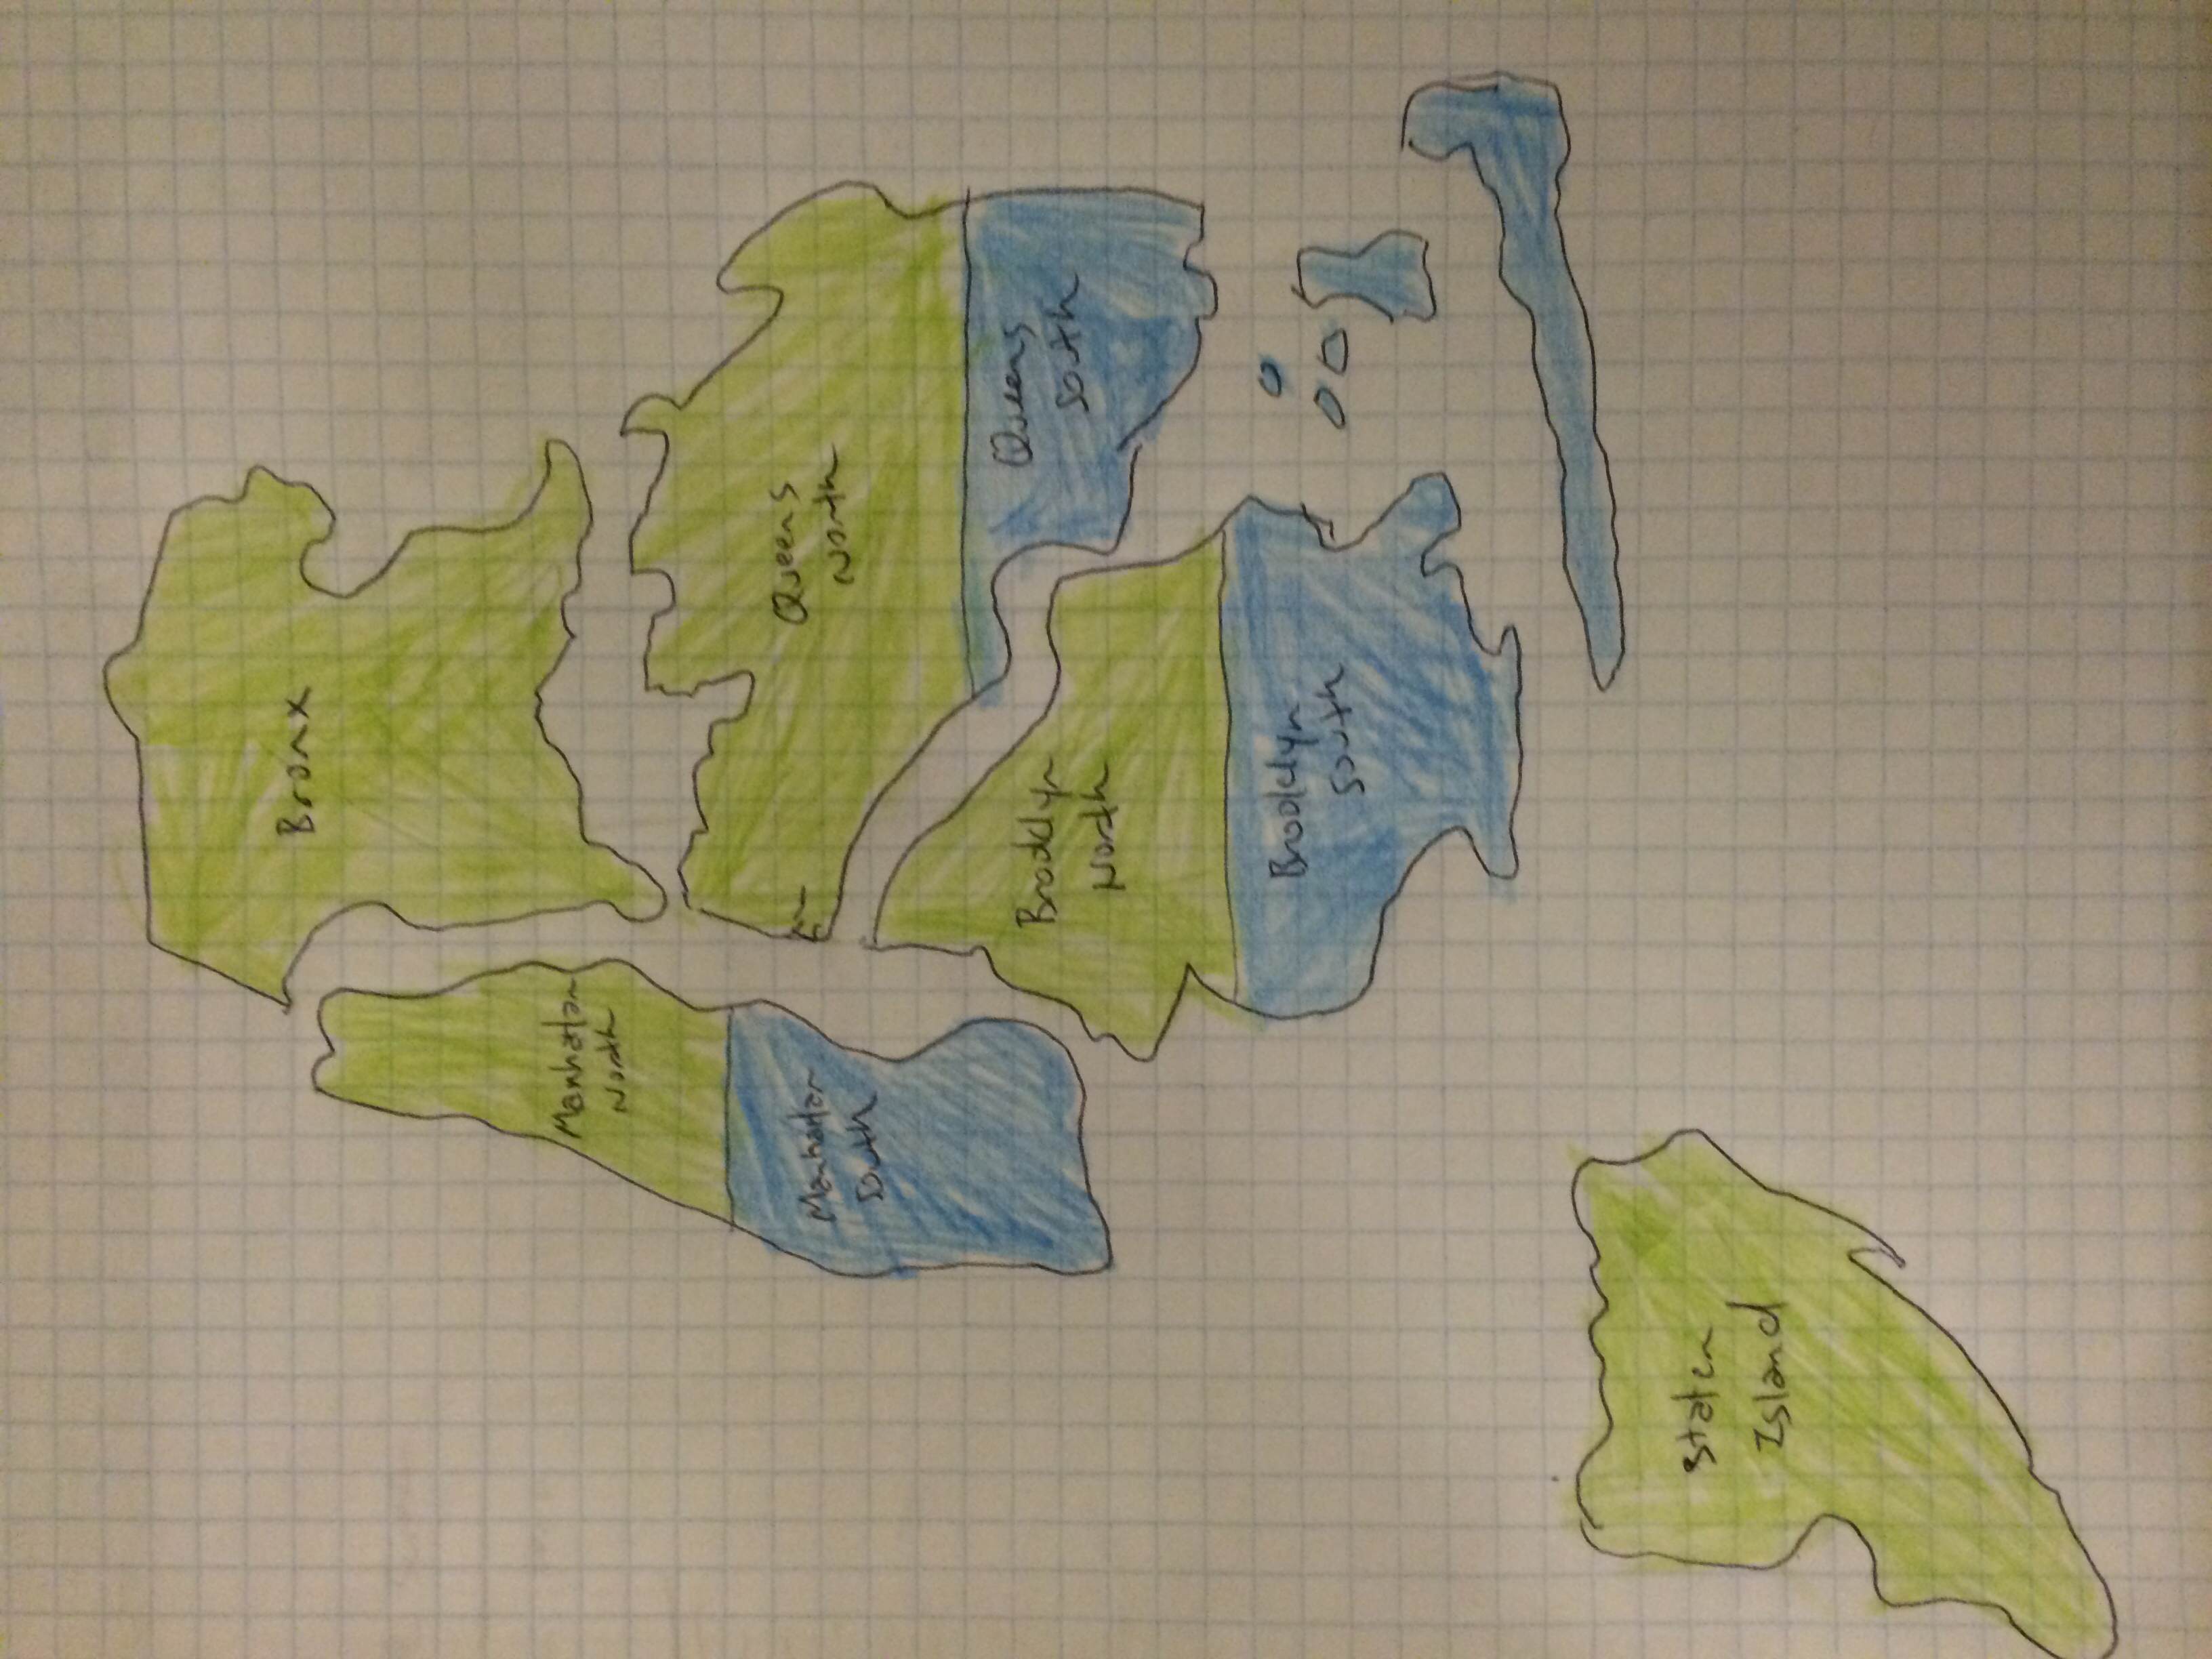 Bronx
Manhatan
North
Manhatan
South
Queens
North
Queens
South
Brooklyn
North
Brooklyn
South
Staten
Island